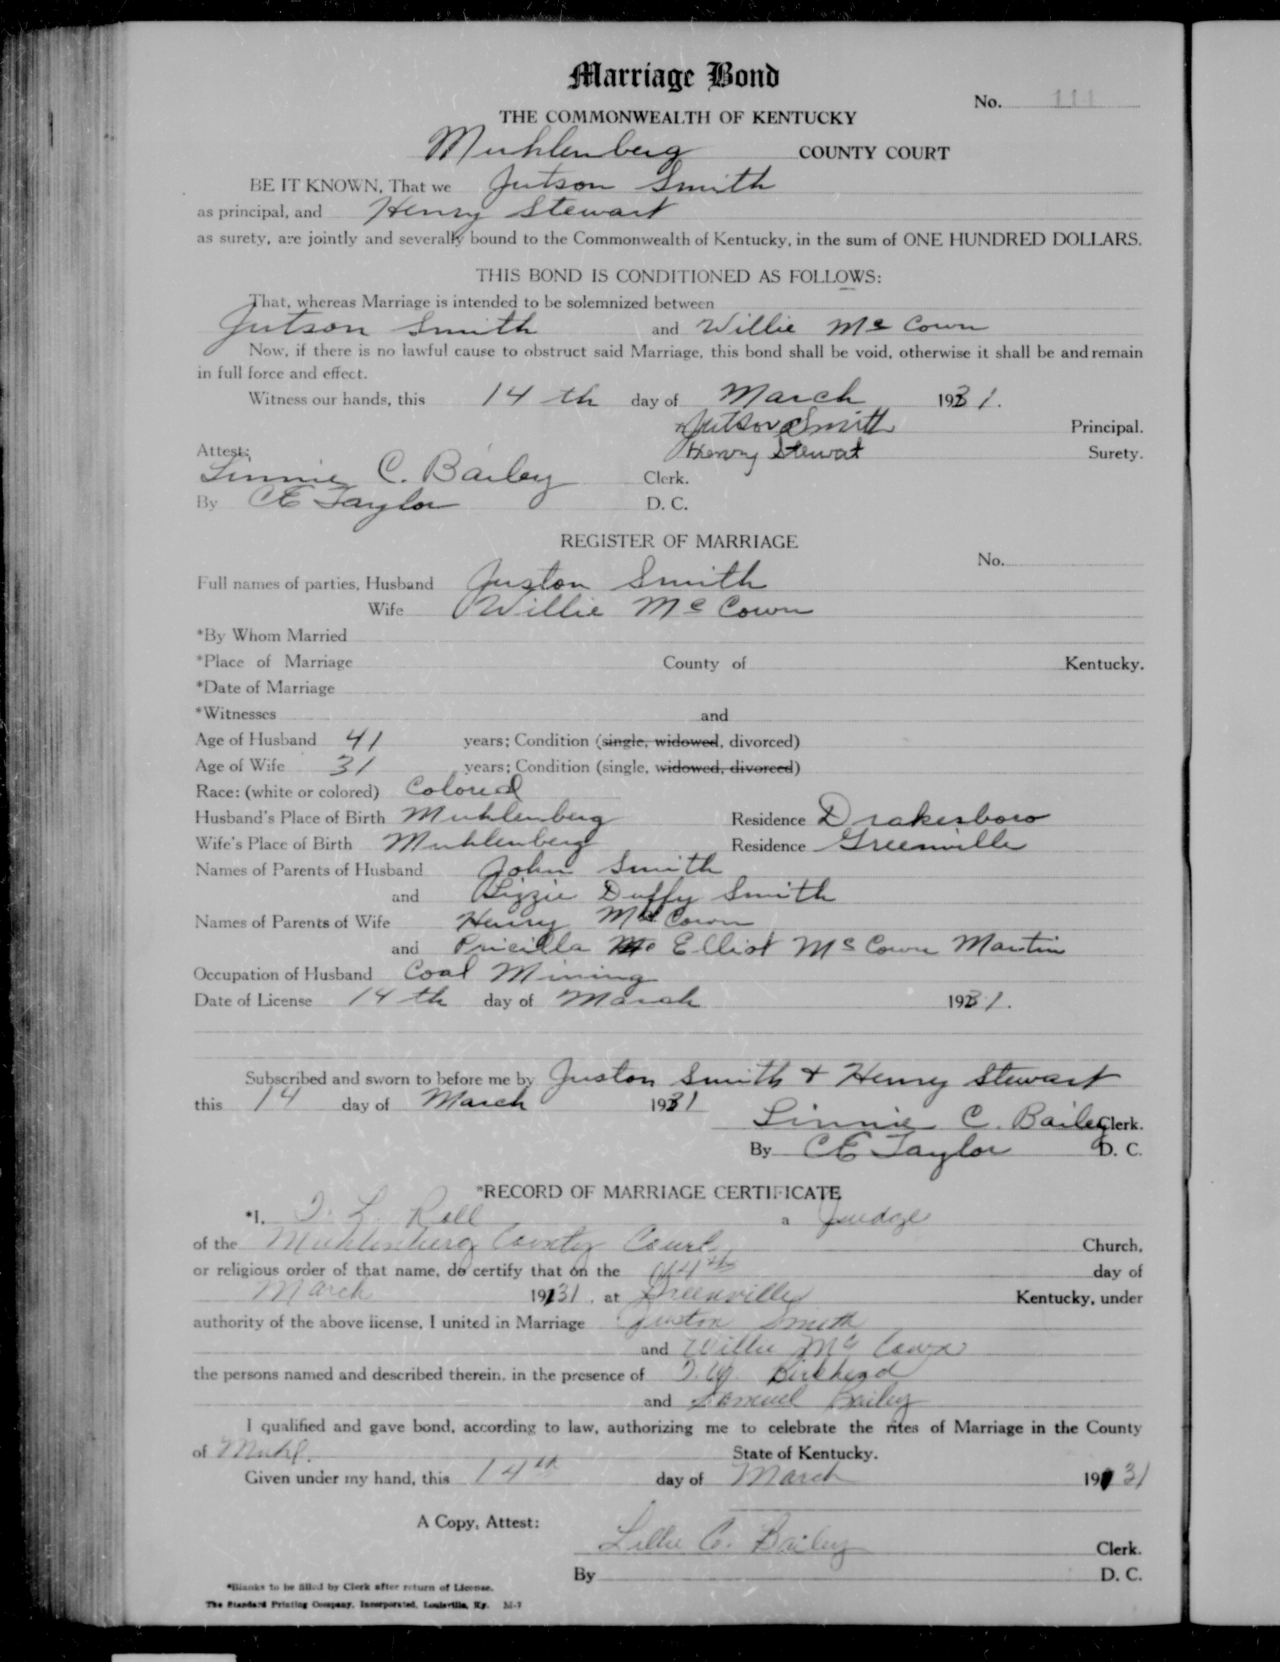 Marriage Bond
No. 111
THE COMMONWEALTH OF KENTUCKY
Muhlenberg COUNTY COURT
BE IT KNOWN, That we Jutson Smith
as principal, and Henry Stewart
as surety, are jointly and severally bound to the Commonwealth of Kentucky, in the sum of ONE HUNDRED DOLLARS.
THIS BOND IS CONDITIONED AS FOLLOWS:
That, whereas Marriage is intended to be solemnized between
Jutson Smith and Willie Mc Cown
Now, if there is no lawful cause to obstruct said Marriage, this bond shall be void, otherwise it shall be and remain
in full force and effect.
Witness our hands, this 14 th day of March 1931.
Jutson Smith Principal.
Henry Stewat Surety.
Attest:
Linnie C. Bailey Clerk.
By CE Taylor D. C.
REGISTER OF MARRIAGE
No.
Full names of parties, Husband Juston Smith
Wife Willie Mc Cown
*By Whom Married
*Place of Marriage County of Kentucky.
*Date of Marriage
*Witnesses and
Age of Husband 41 years; Condition (single, widowed, divorced)
Age of Wife 31 years; Condition (single, widowed, divorced)
Race: (white or colored) Colored
Husband's Place of Birth Muhlenberg Residence Drakesboro
Wife's Place of Birth Muhlenberg Residence Greenville
Names of Parents of Husband John Smith
and Lizzie Duffy Smith
Names of Parents of Wife Henry Mc Cown
and Pricilla Mc Elliot Mc Cown Martin
Occupation of Husband Coal Mining
Date of License 14 th day of March 1931.
Subscribed and sworn to before me by Juston Smith & Henry Stewart
this 14 day of March 1931
Linnie C. Bailey Clerk.
By CE Taylor D. C.
*RECORD OF MARRIAGE CERTIFICATE
*I, T. L. Roll a Juedge
of the Muhlenberg County Court Church,
or religious order of that name, do certify that on the 14th day of
March 1931, at Greenville Kentucky, under
authority of the above license, I united in Marriage Juston Smith
and Willie Mc Cown
the persons named and described therein, in the presence of Birkhead
and Samuel Bailey
I qualified and gave bond, according to law, authorizing me to celebrate the rites of Marriage in the County
of Muhl. State of Kentucky.
Given under my hand, this 14th day of March 1931
A Copy, Attest:
Lillie C. Bailey Clerk.
By D. C.
*Blanks to be filled by Clerk after return of License.
The Standard Printing Company, Incorporated, Louisville, Ky. M-7